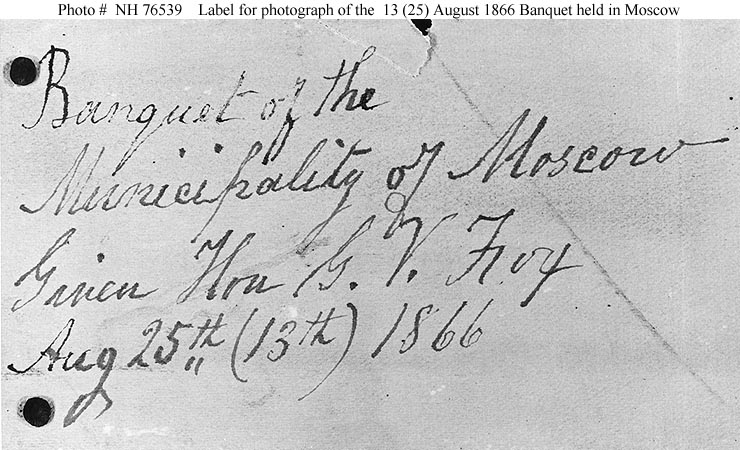 Photo # NH 76539 Label for photograph of the 13 (25) August 1866 Banquet held in Moscow
Banquet of the
Municipality of Moscow
Given Hon G. V. Fox
Aug 25th (13th) 1866